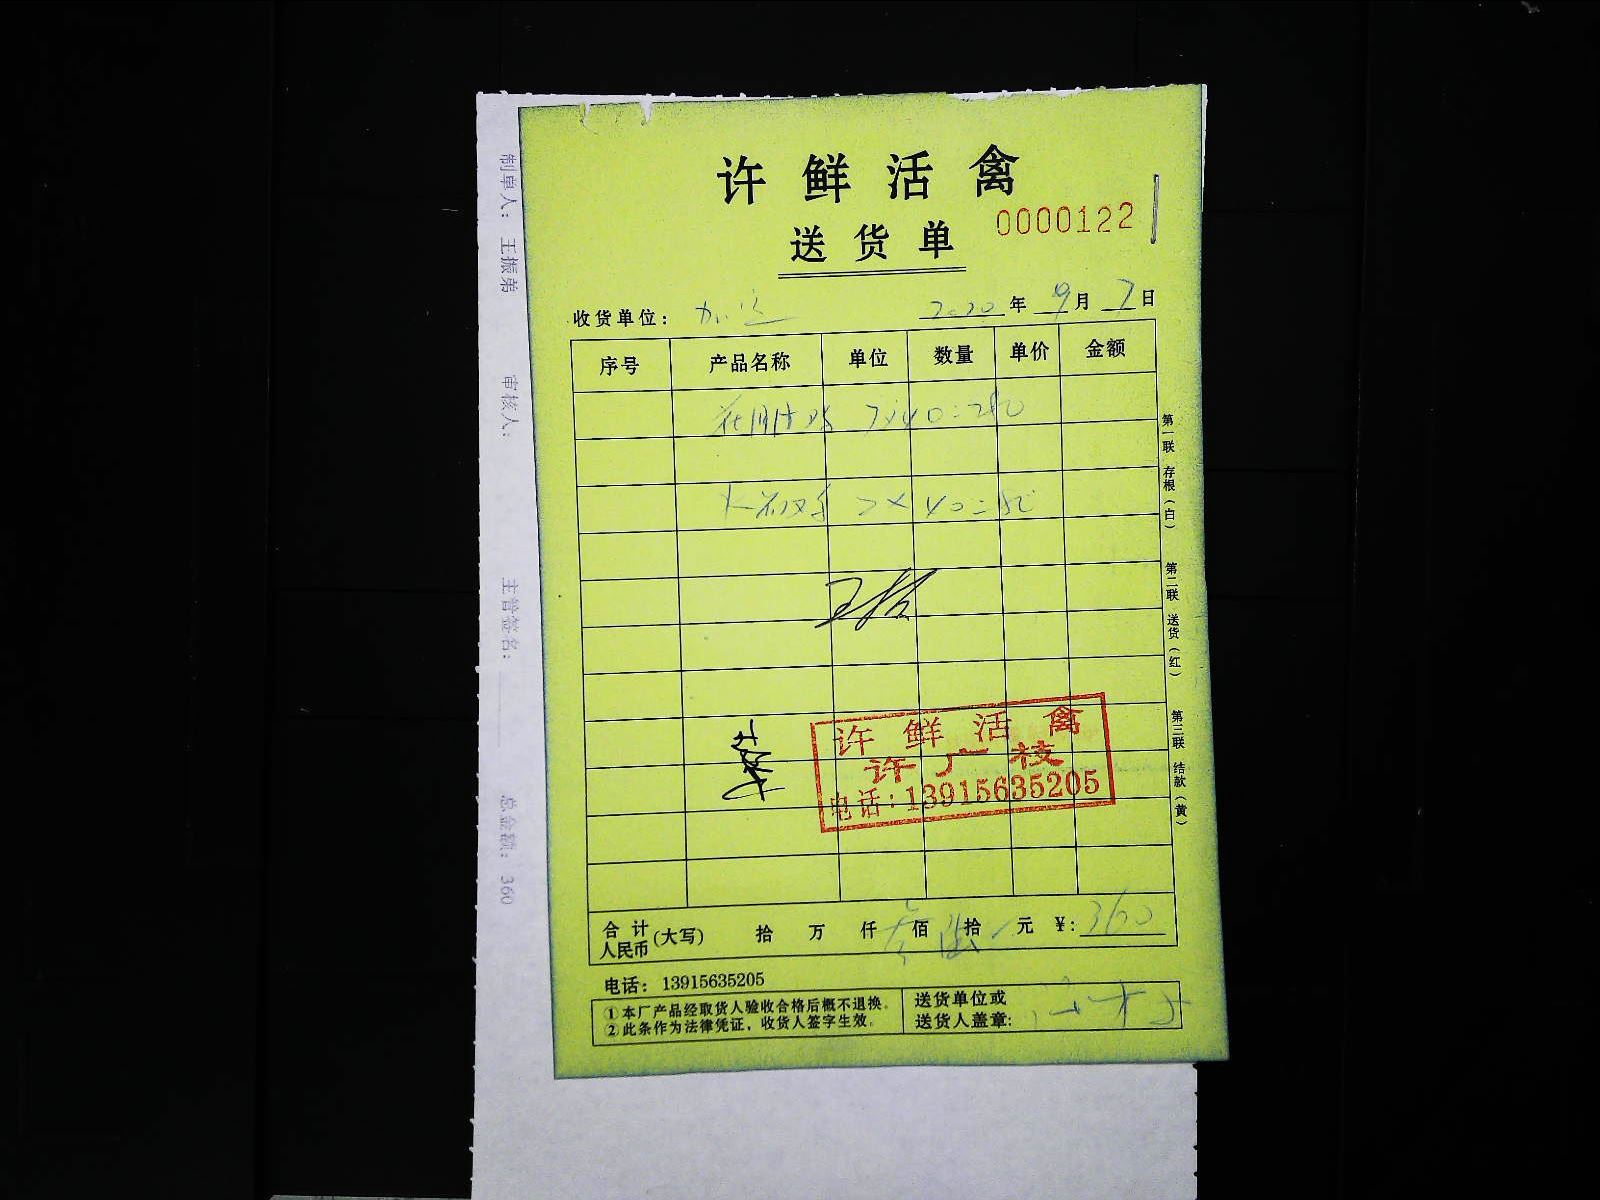 许鲜活禽
送货单 0000122
收货单位: 2020年9月7日
序号 产品名称 单位 数量 单价 金额
7×40=280
2×40=80
许鲜活禽
许广枝
电话:13915635205
合计人民币(大写) 拾 万 仟 叁佰 陆拾 元 ¥:360
电话: 13915635205
①本厂产品经取货人验收合格后概不退换。
②此条作为法律凭证,收货人签字生效。
送货单位或
送货人盖章:
第一联 存根(白) 第二联 送货(红) 第三联 结款(黄)
制单人: 王振弟 审核人: 主管签名: 总金额: 360